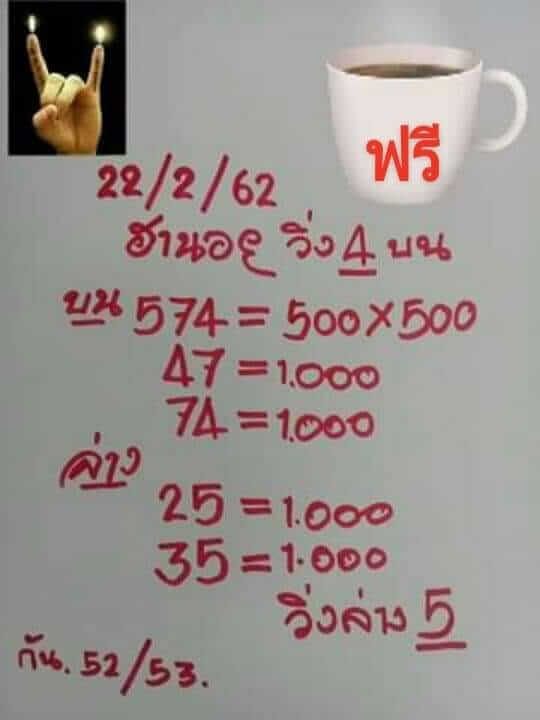 ฟรี
22/2/62
ฮานอย วิ่ง 4 บน
บน 574 = 500×500
47 = 1.000
74 = 1.000
ล่าง
25 = 1.000
35 = 1.000
วิ่งล่าง 5
กัน. 52/53.